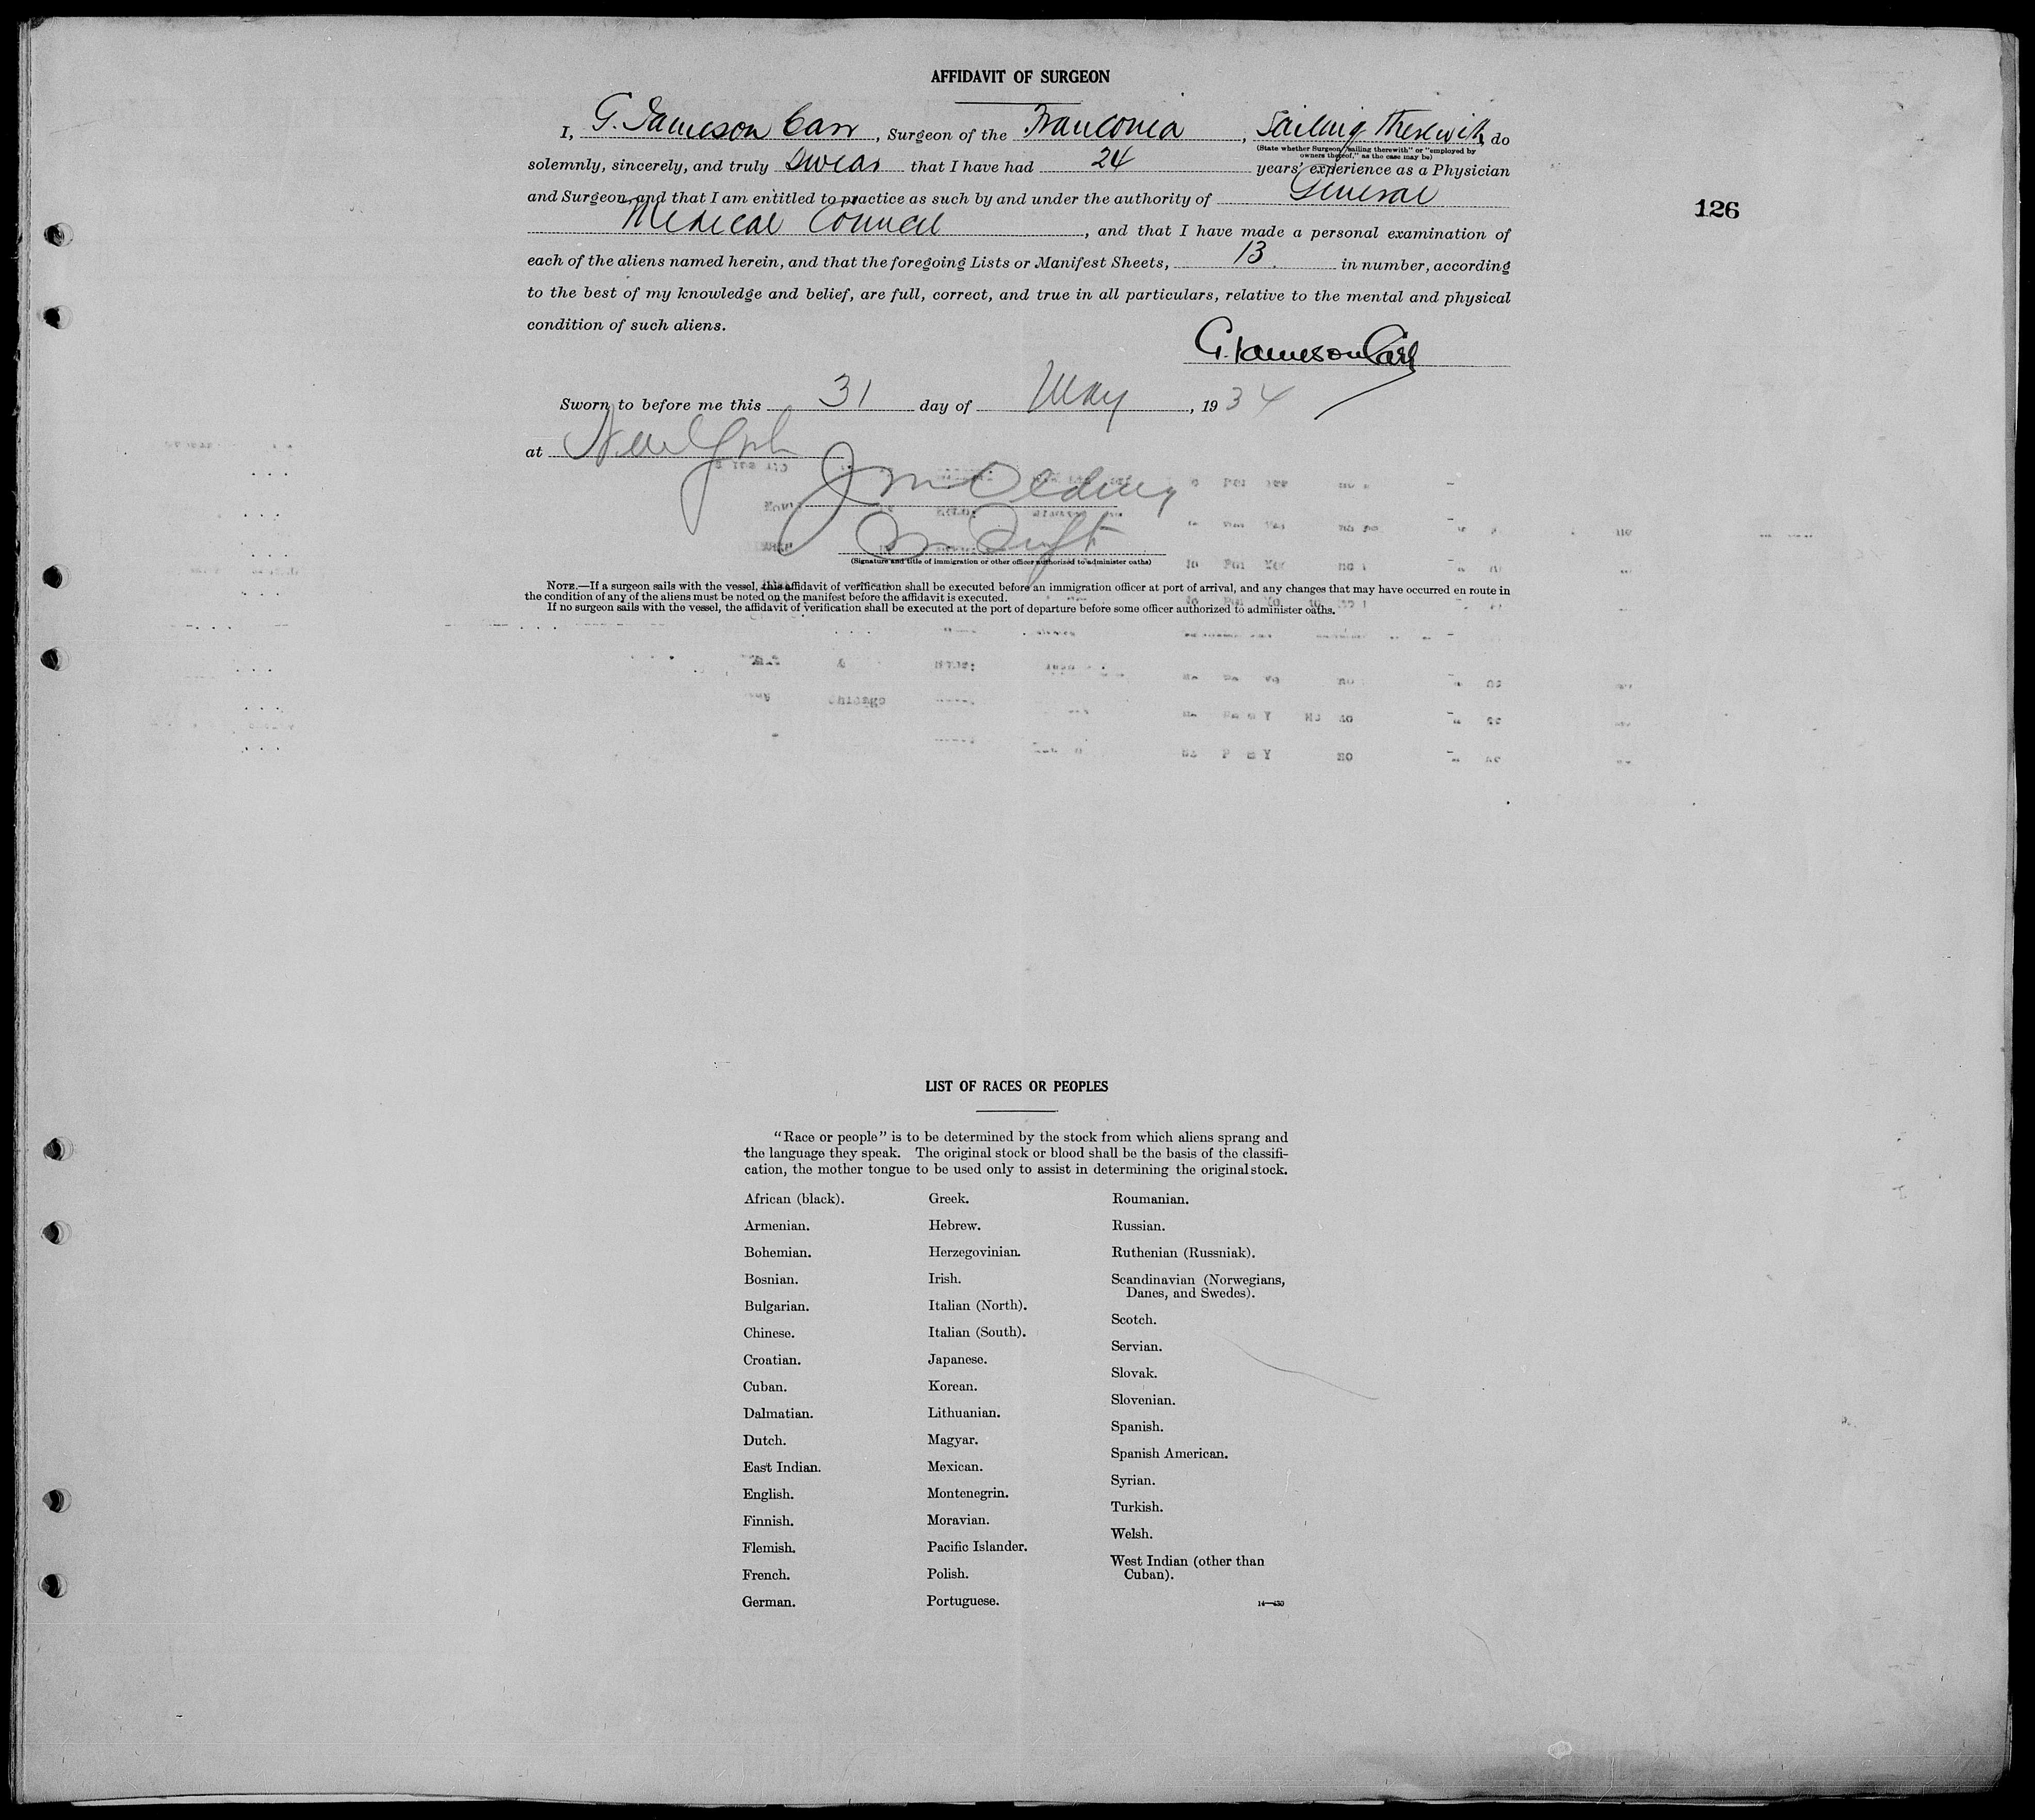 AFFIDAVIT OF SURGEON
I, G. Jameson Carr, Surgeon of the Franconia, Sailing therewith, do
(State whether Surgeon "sailing therewith" or "employed by
owners thereof," as the case may be)
solemnly, sincerely, and truly swear that I have had 24 years' experience as a Physician
and Surgeon, and that I am entitled to practice as such by and under the authority of General
Medical Council, and that I have made a personal examination of
126
each of the aliens named herein, and that the foregoing Lists or Manifest Sheets, 13. in number, according
to the best of my knowledge and belief, are full, correct, and true in all particulars, relative to the mental and physical
condition of such aliens.
G. Jameson Carr
Sworn to before me this 31 day of May, 1934
at New York
(Signature and title of immigration or other officer authorized to administer oaths)
NOTE.—If a surgeon sails with the vessel, this affidavit of verification shall be executed before an immigration officer at port of arrival, and any changes that may have occurred en route in
the condition of any of the aliens must be noted on the manifest before the affidavit is executed.
If no surgeon sails with the vessel, the affidavit of verification shall be executed at the port of departure before some officer authorized to administer oaths.
LIST OF RACES OR PEOPLES
"Race or people" is to be determined by the stock from which aliens sprang and
the language they speak. The original stock or blood shall be the basis of the classifi-
cation, the mother tongue to be used only to assist in determining the original stock.
African (black).
Armenian.
Bohemian.
Bosnian.
Bulgarian.
Chinese.
Croatian.
Cuban.
Dalmatian.
Dutch.
East Indian.
English.
Finnish.
Flemish.
French.
German.
Greek.
Hebrew.
Herzegovinian.
Irish.
Italian (North).
Italian (South).
Japanese.
Korean.
Lithuanian.
Magyar.
Mexican.
Montenegrin.
Moravian.
Pacific Islander.
Polish.
Portuguese.
Roumanian.
Russian.
Ruthenian (Russniak).
Scandinavian (Norwegians,
Danes, and Swedes).
Scotch.
Servian.
Slovak.
Slovenian.
Spanish.
Spanish American.
Syrian.
Turkish.
Welsh.
West Indian (other than
Cuban).